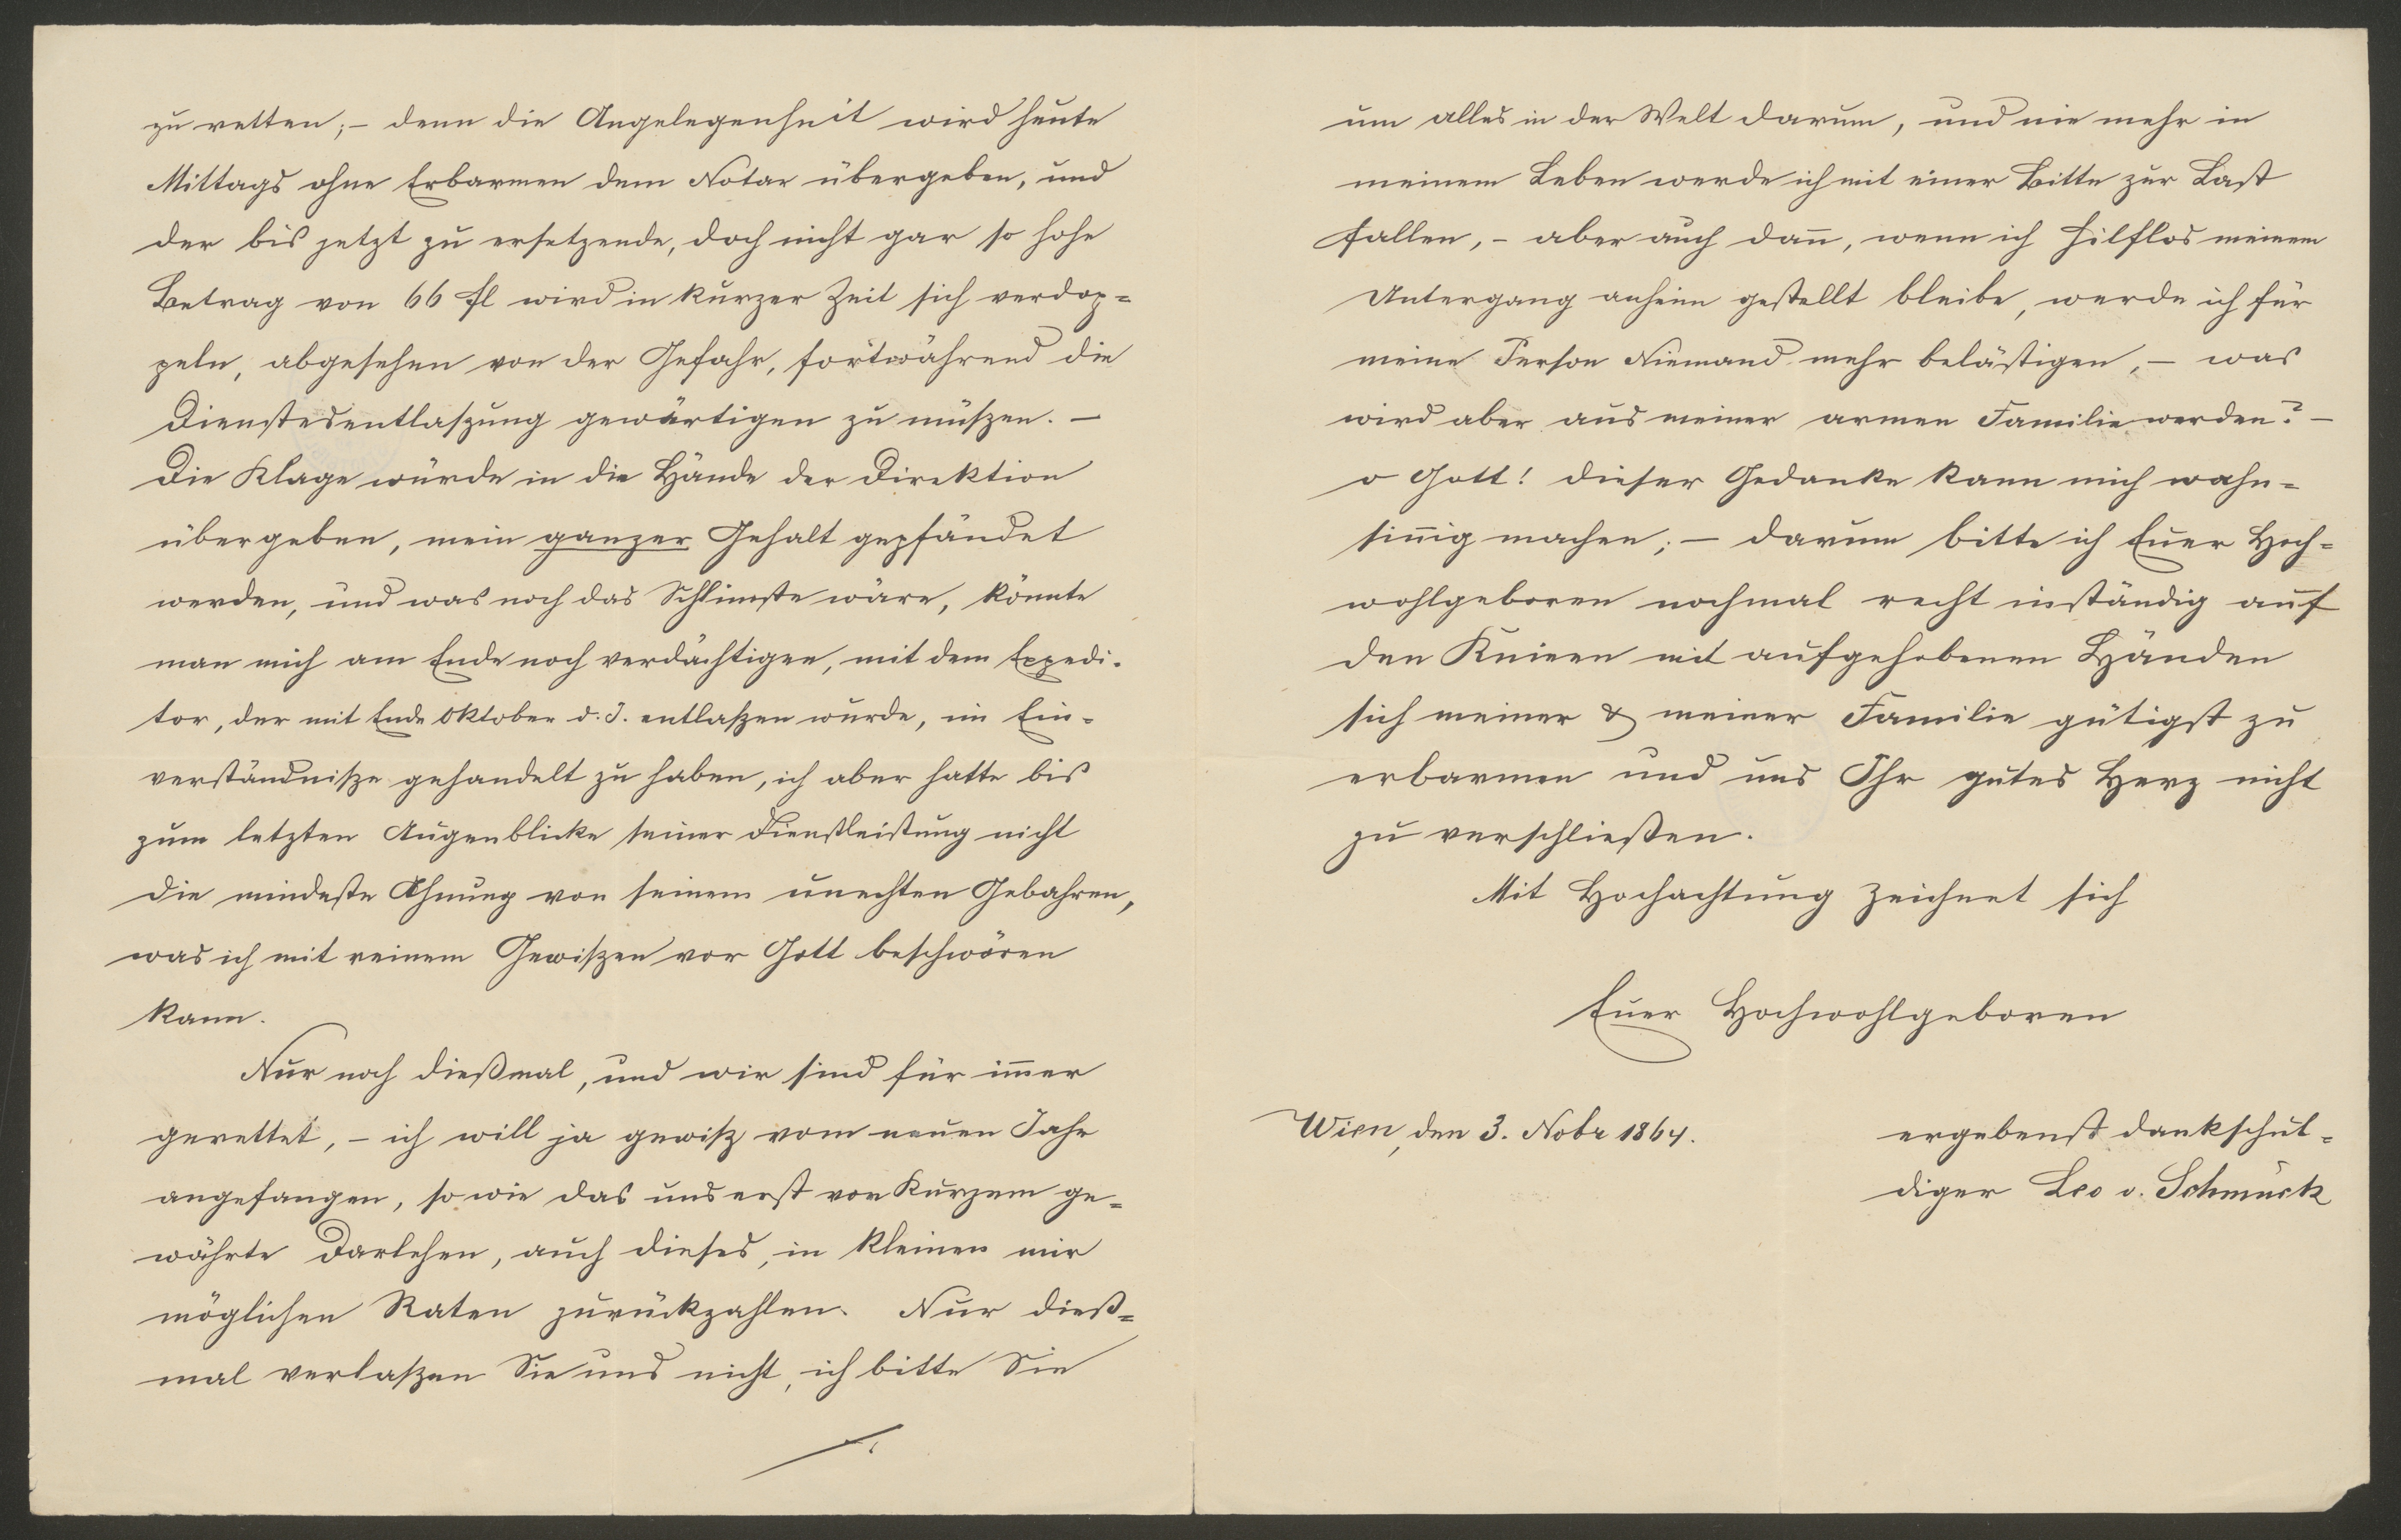 zu retten; – denn die Angelegenheit wird heute
Mittags ohne Erbarmen dem Notar übergeben, und
der bis jetzt zu ersetzende, doch nicht gar so hohe
Betrag von 66 fl wird in kurzer Zeit sich verdop=
peln, abgesehen von der Gefahr, fortwährend die
Dienstesentlaßung gewärtigen zu müßen. –
Die Klage würde in die Hände der Direktion
übergeben, mein ganzer Gehalt gepfändet
werden, und was noch das Schlim̅ste wäre, könnte
man mich am Ende noch verdächtigen, mit dem Expedi-
tor, der mit Ende Oktober d. J. entlaßen wurde, im Ein-
verständniße gehandelt zu haben, ich aber hatte bis
zum letzten Augenblicke seiner Dienstleistung nicht
die mindeste Ahnung von seinem unechten Gebahren,
was ich mit reinem Gewißen vor Gott beschwören
kann.
Nur noch dießmal, und wir sind für im̅er
gerettet, – ich will ja gewiß vom neuen Jahr
angefangen, so wie das uns erst vor Kurzem ge=
währte Darlehen, auch dieses, in kleinen mir
möglichen Raten zurückzahlen. Nur dieß=
mal verlaßen Sie uns nicht, ich bitte Sie
um alles in der Welt darum, und nie mehr in
meinem Leben werde ich mit einer Bitte zur Last
fallen, – aber auch dan̅, wenn ich hilflos meinem
Untergang anheim gestellt bleibe, werde ich für
meine Person Niemand mehr belästigen, – was
wird aber aus meiner armen Familie werden? –
o Gott! dieser Gedanke kann mich wahn=
sin̅ig machen; – darum bitte ich Euer Hoch=
wohlgeboren nochmal recht inständig auf
den Knieen mit aufgehobenen Händen
sich meiner & meiner Familie gütigst zu
erbarmen und uns Ihr gutes Herz nicht
zu verschließen.
Mit Hochachtung zeichnet sich
Euer Hochwohlgeboren
Wien, den 3. Nobr 1864.
ergebenst dankschul=
diger Leo v. Schmuck